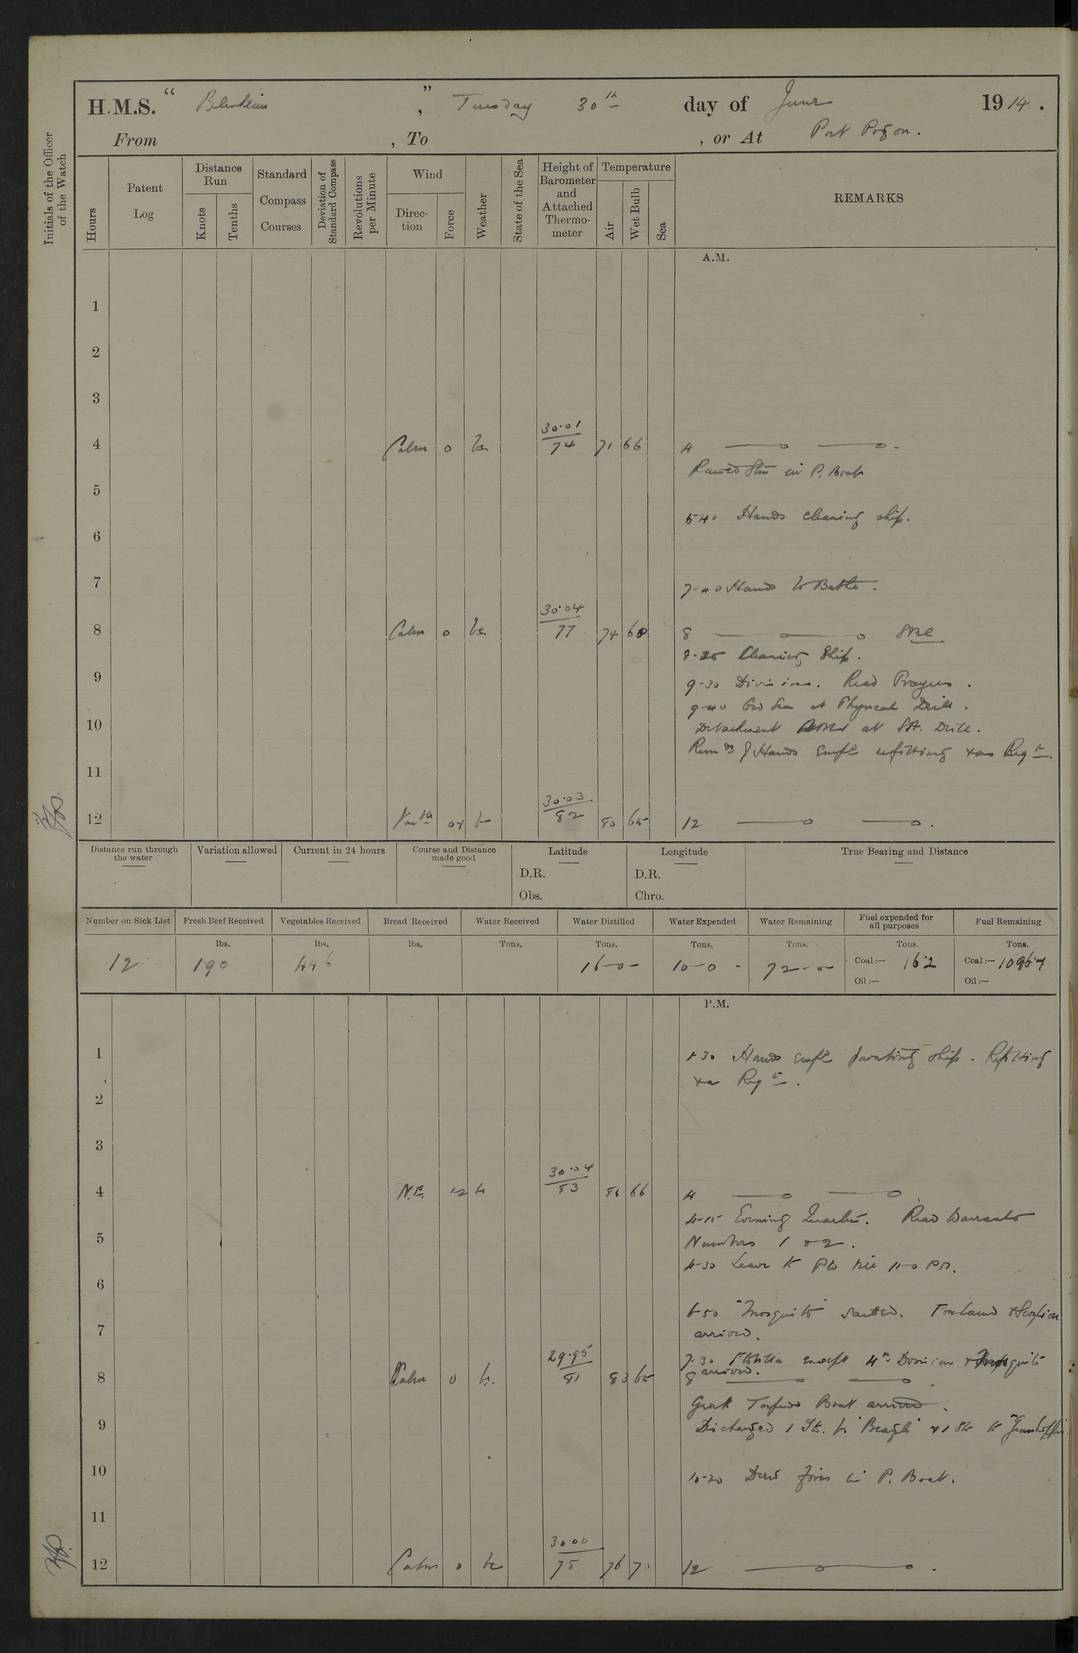 H.M.S. " Blenheim ", Tuesday 30th day of June 1914.
From , To , or At Port Pogon.
Initials of the Officer of the Watch
Hours
Patent Log
Distance Run
Knots
Tenths
Standard Compass Courses
Deviation of Standard Compass
Revolutions per Minute
Wind
Direction
Force
Weather
State of the Sea
Height of Barometer and Attached Thermometer
Temperature
Air
Wet Bulb
Sea
REMARKS
A.M.
1
2
3
4 Calm 0 bc 30.01 / 74 71 66 4
Raised Stm in P. Boat
5
5-40 Hands cleaning ship.
6
7
7-40 Hands to Bathe.
8 Calm 0 bc 30.04 / 77 74 68 8
8-25 Cleaning Ship.
9
9-30 Divisions. Read Prayers.
9-40 Ord Sea at Physical Drill.
10
Detachment at SA. Drill.
Remdr of Hands empld refitting & as Reqte.
11
12 Varble 01 b 30.03 / 82 80 65 12
Distance run through the water
Variation allowed
Current in 24 hours
Course and Distance made good
Latitude
D.R.
Obs.
Longitude
D.R.
Chro.
True Bearing and Distance
Number on Sick List
Fresh Beef Received
Vegetables Received
Bread Received
Water Received
Water Distilled
Water Expended
Water Remaining
Fuel expended for all purposes
Fuel Remaining
lbs. lbs. lbs. Tons. Tons. Tons. Tons. Tons. Tons.
12 190 446 16-0- 10-0- 72-0- Coal:— 16.2 Coal:— 1096.7
Oil:— Oil:—
P.M.
1
1-30 Hands empld painting ship. Refitting
& as Reqte.
2
3
4 N.E. 1-2 b 30.04 / 83 86 66 4
4-15 Evening Quarters. Read Warrants
Numbers 1 & 2.
5
4-30 Leave to POs till 11-0 PM.
6
6-50 "Mosquito" sailed. Foxhound & Scorpion
7
arrived.
7-30 Flotilla except 4th Division & Mosquito
arrived.
8 Calm 0 b. 29.95 / 81 83 65 8
Greek Torpedo Boat arrived.
9
Discharged 1 Sto. to "Beagle" & 1 Sto to "Grasshopper"
10
10-20 Died fires in P. Boat.
11
12 Calm 0 bc 30.00 / 75 76 70 12